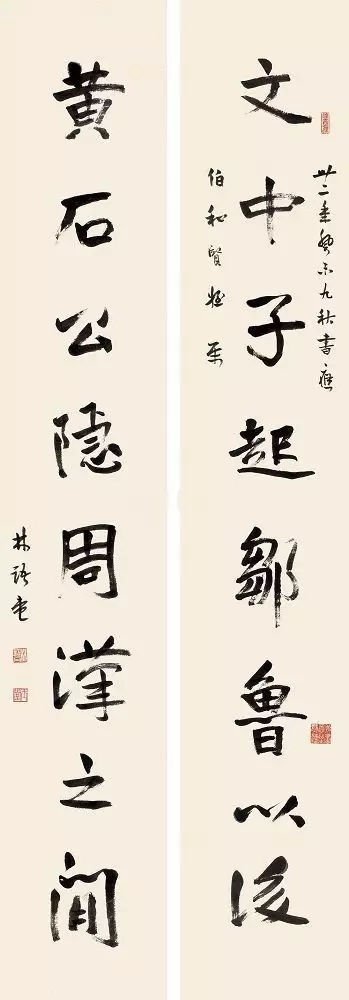 卅二年癸未九秋書應
文中子起鄒魯以後
伯和賢姪屬
黄石公隱周漢之間
林語堂